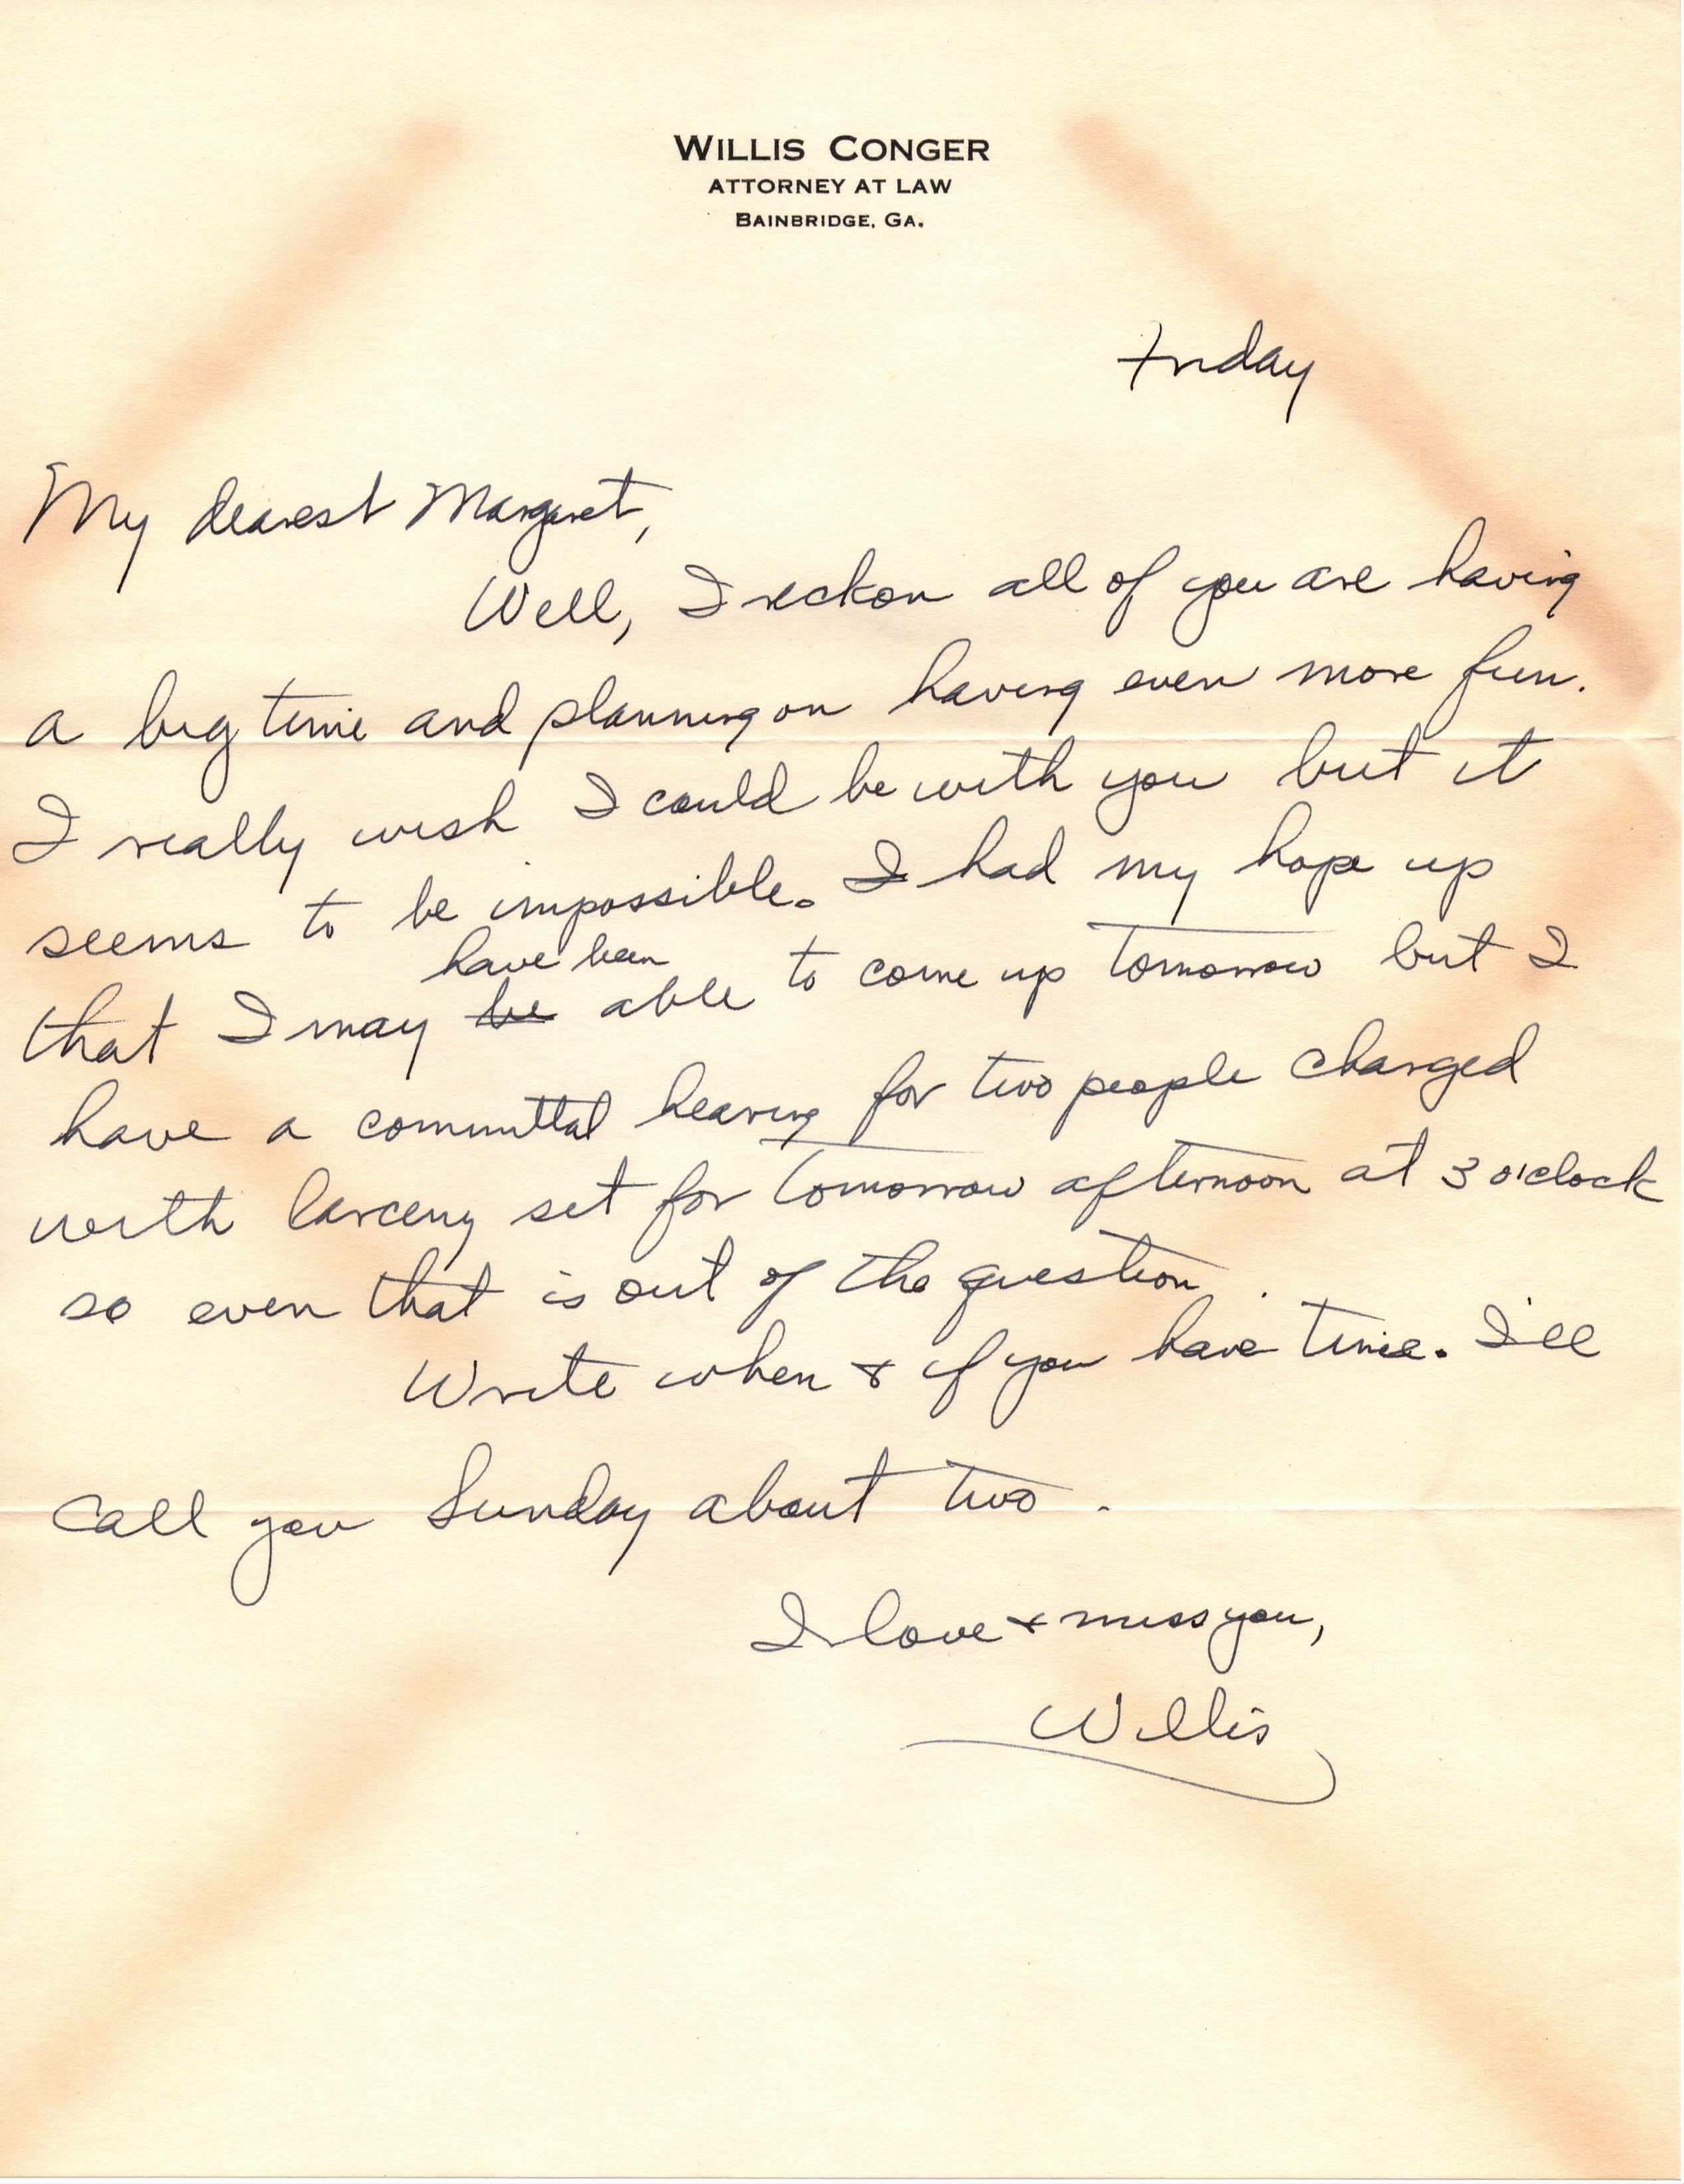 WILLIS CONGER
ATTORNEY AT LAW
BAINBRIDGE, GA.
Friday
My dearest Margaret,
Well, I reckon all of you are having
a big time and planning on having even more fun.
I really wish I could be with you but it
seems to be impossible. I had my hope up
have been
that I may be able to come up tomorrow but I
have a committal hearing for two people charged
with larceny set for tomorrow afternoon at 3 o'clock
so even that is out of the question.
Write when & if you have time. I'll
call you Sunday about two.
I love & miss you,
Willis